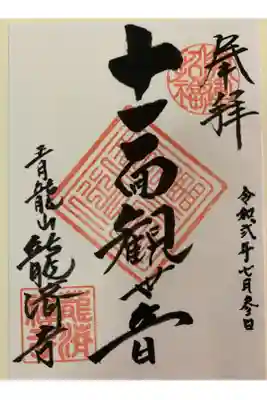 奉拝
令和弐年七月参日
十一面觀世音
青龍山龍済寺